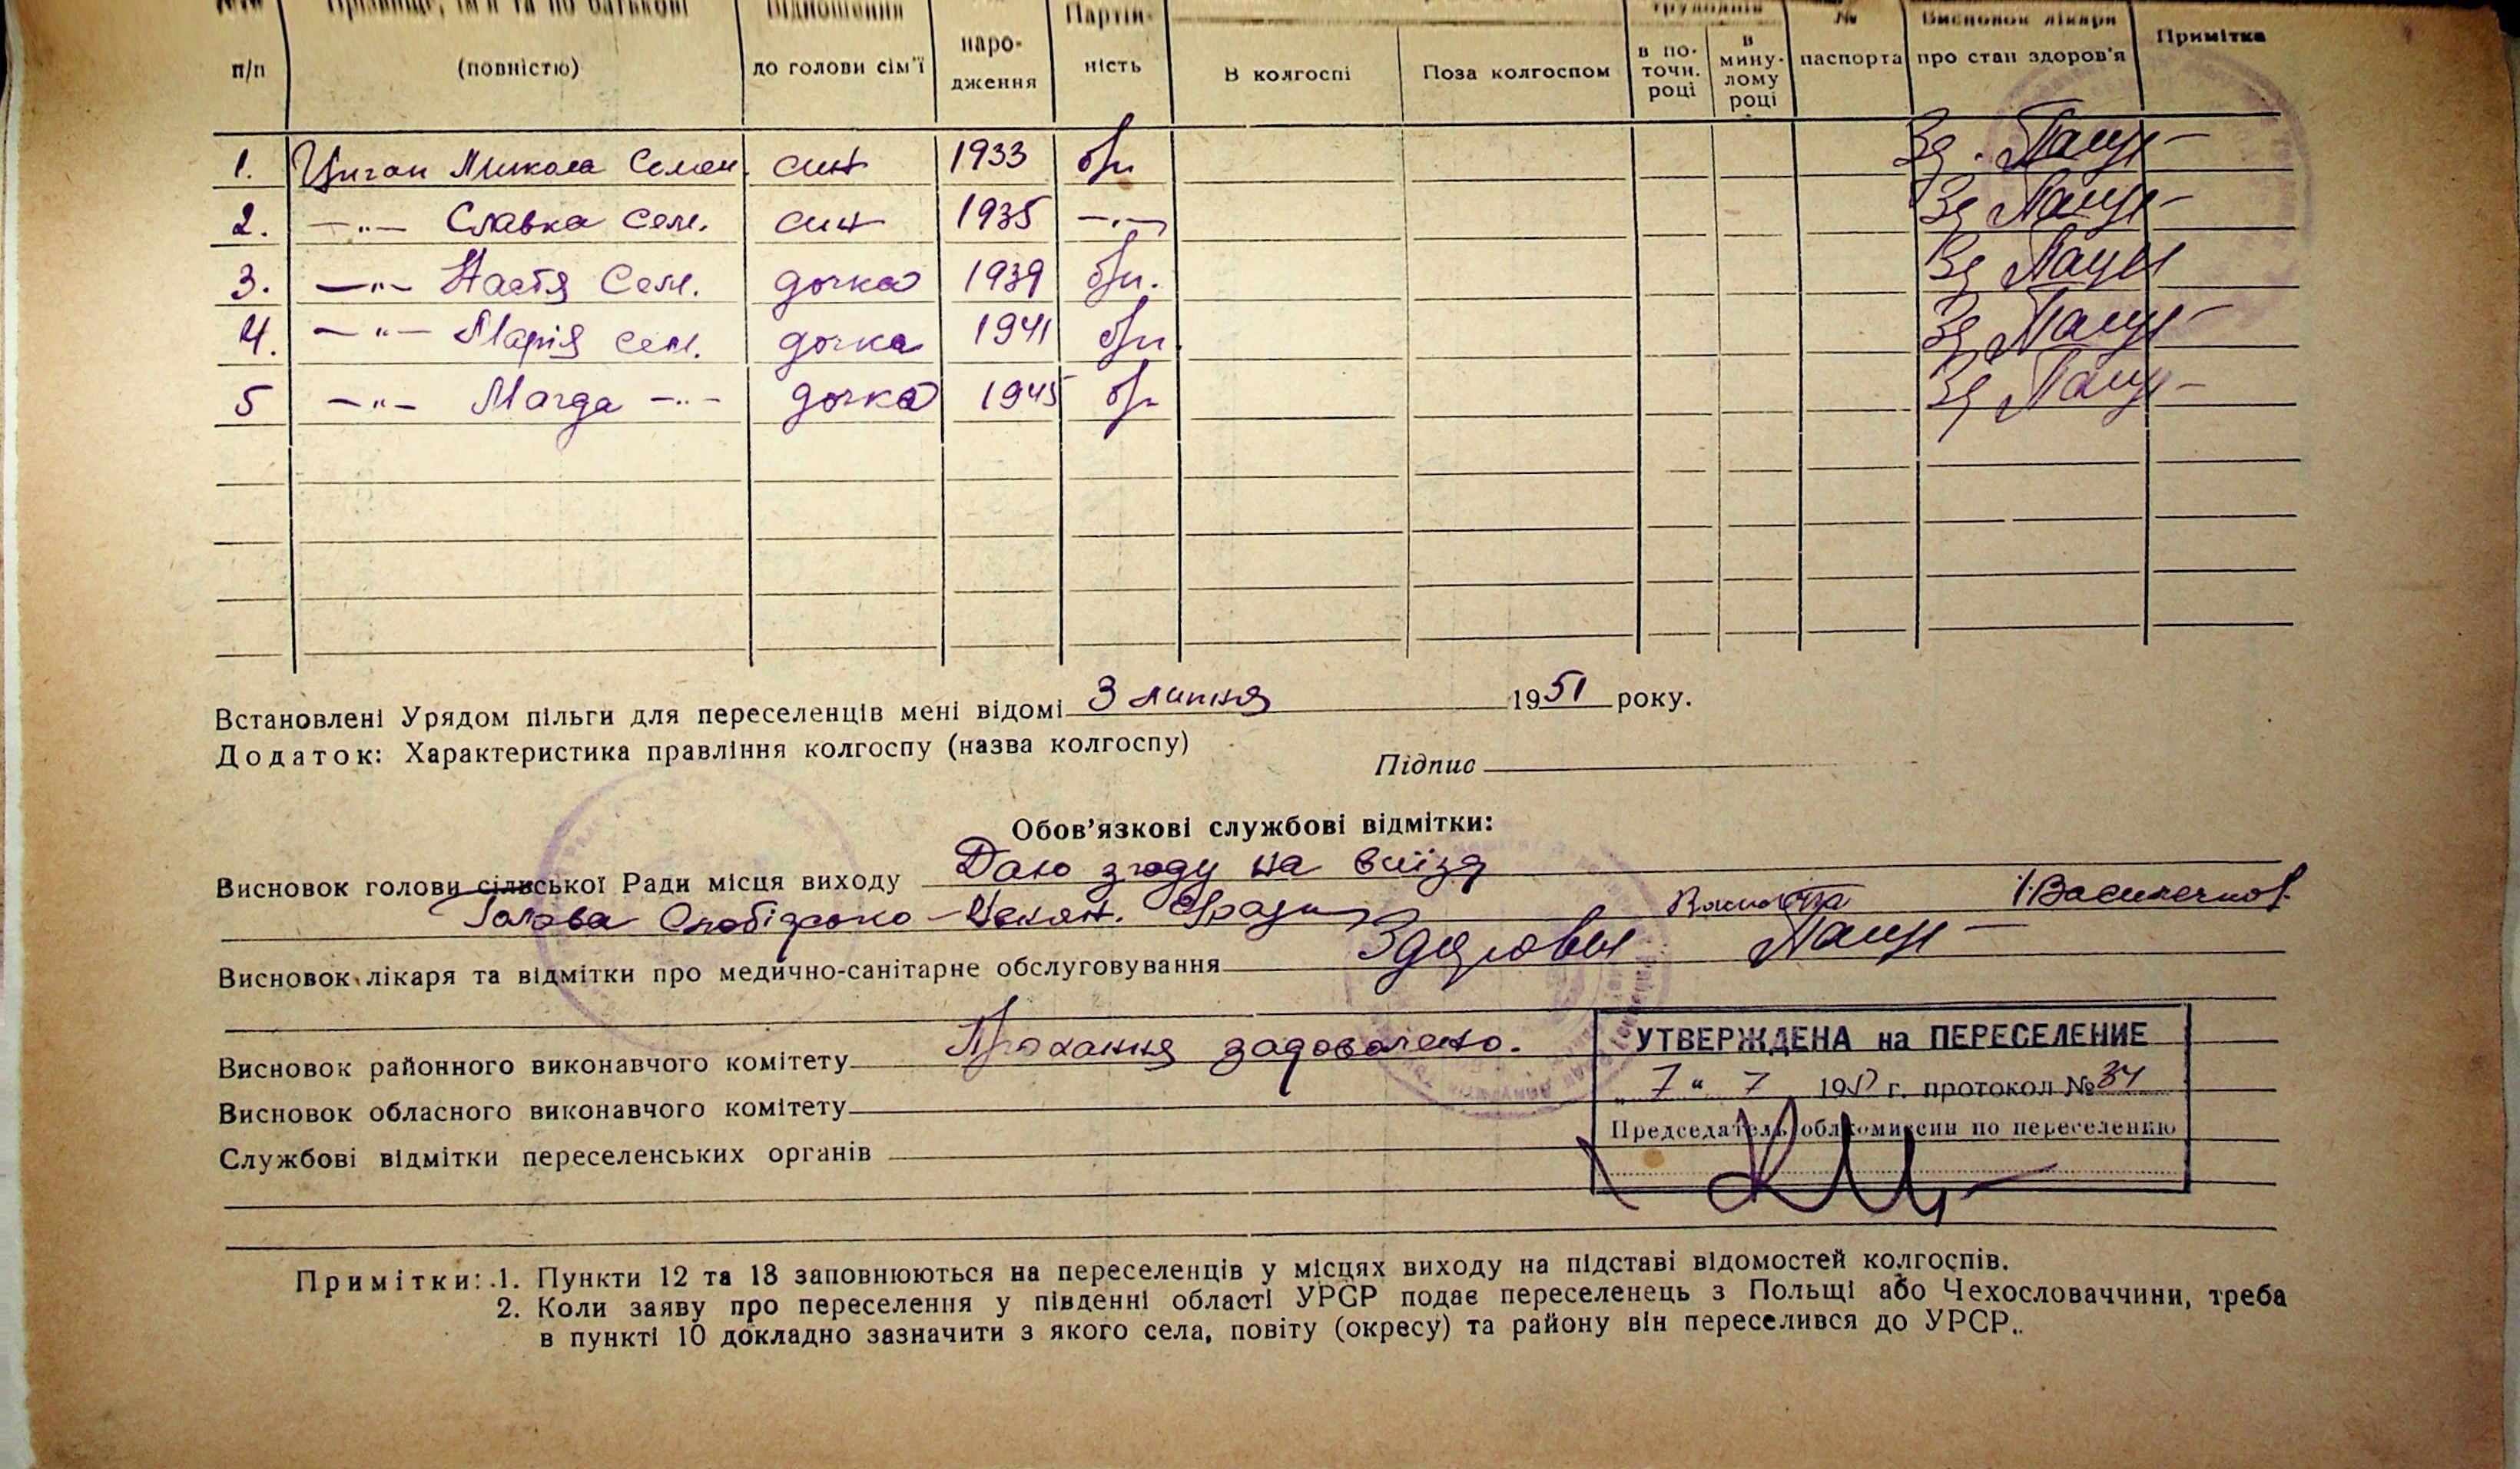 п/п (повністю) до голови сім'ї народження Партійність В колгоспі Поза колгоспом в поточн. році в минулому році № паспорта Висновок лікаря про стан здоров'я Примітка
1. Циган Микола Семен. син 1933 б/п Зд.
2. —"— Славка Сем. син 1935 —"— Зд
3. —"— Настя Сем. дочка 1939 б/п. Зд
4. —"— Марія Сем. дочка 1941 б/п Зд
5 —"— Магда —"— дочка 1945 б/п Зд
Встановлені Урядом пільги для переселенців мені відомі 3 липня 1951 року.
Додаток: Характеристика правління колгоспу (назва колгоспу)
Підпис
Обов'язкові службові відмітки:
Висновок голови сільської Ради місця виходу Даю згоду на виїзд
Голова
Висновок лікаря та відмітки про медично-санітарне обслуговування Здоровы
Висновок районного виконавчого комітету Прохання задоволено.
УТВЕРЖДЕНА на ПЕРЕСЕЛЕНИЕ
„ 7 " 7 1951 г. протокол № 34
Председатель облкомиссии по переселению
Висновок обласного виконавчого комітету
Службові відмітки переселенських органів
Примітки: 1. Пункти 12 та 13 заповнюються на переселенців у місцях виходу на підставі відомостей колгоспів.
2. Коли заяву про переселення у південні області УРСР подає переселенець з Польщі або Чехословаччини, треба
в пункті 10 докладно зазначити з якого села, повіту (окресу) та району він переселився до УРСР.